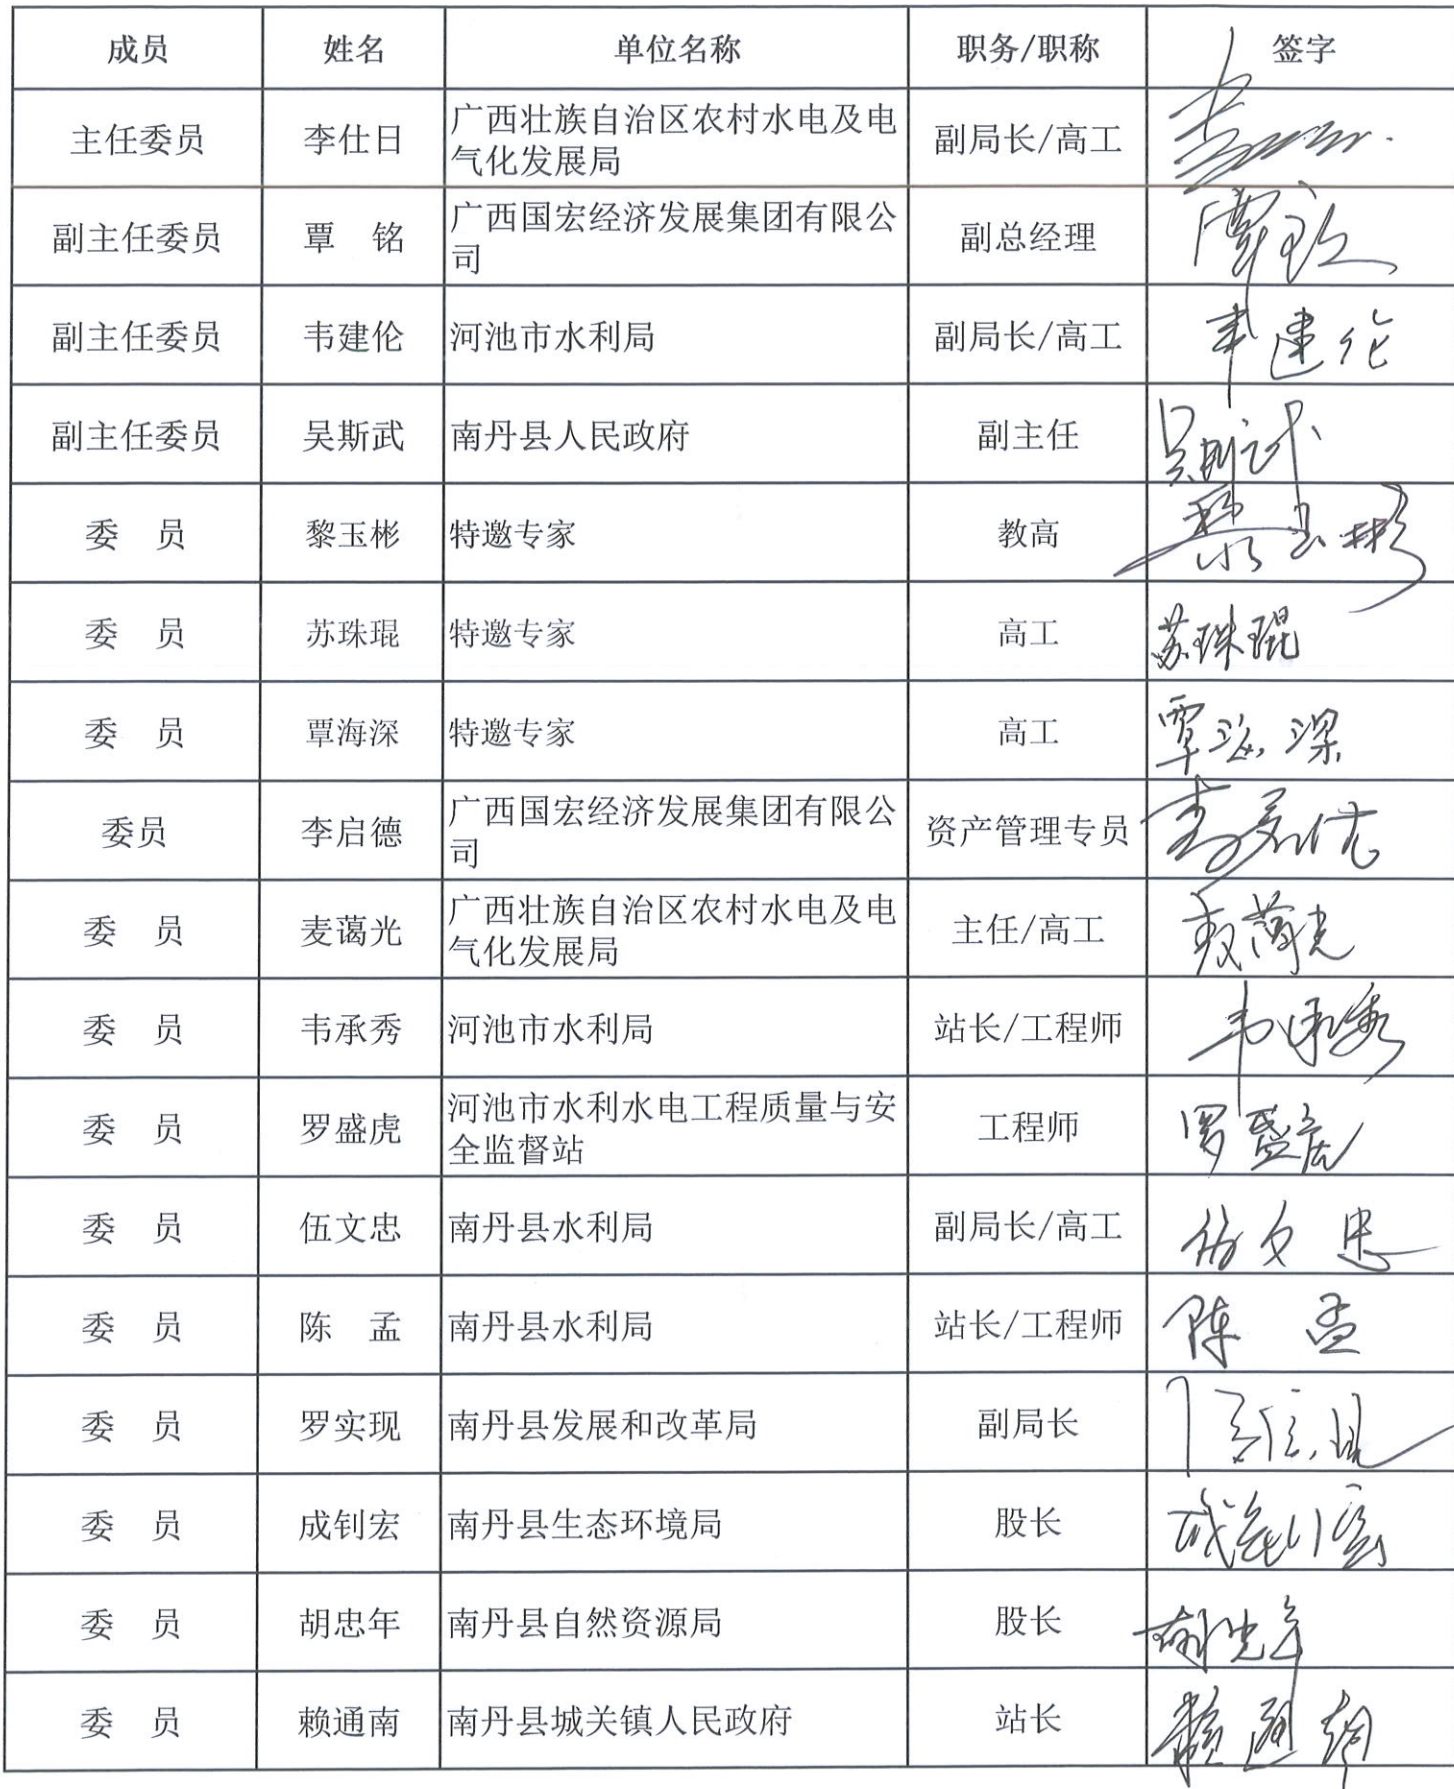 成员 姓名 单位名称 职务/职称 签字
主任委员 李仕日 广西壮族自治区农村水电及电
气化发展局 副局长/高工
副主任委员 覃 铭 广西国宏经济发展集团有限公
司 副总经理
副主任委员 韦建伦 河池市水利局 副局长/高工 韦建伦
副主任委员 吴斯武 南丹县人民政府 副主任 吴斯武
委 员 黎玉彬 特邀专家 教高 黎玉彬
委 员 苏珠琨 特邀专家 高工 苏珠琨
委 员 覃海深 特邀专家 高工 覃海深
委员 李启德 广西国宏经济发展集团有限公
司 资产管理专员 李启德
委 员 麦蔼光 广西壮族自治区农村水电及电
气化发展局 主任/高工 麦蔼光
委 员 韦承秀 河池市水利局 站长/工程师 韦承秀
委 员 罗盛虎 河池市水利水电工程质量与安
全监督站 工程师 罗盛虎
委 员 伍文忠 南丹县水利局 副局长/高工 伍文忠
委 员 陈 孟 南丹县水利局 站长/工程师 陈 孟
委 员 罗实现 南丹县发展和改革局 副局长
委 员 成钊宏 南丹县生态环境局 股长 成钊宏
委 员 胡忠年 南丹县自然资源局 股长 胡忠年
委 员 赖通南 南丹县城关镇人民政府 站长 赖通南